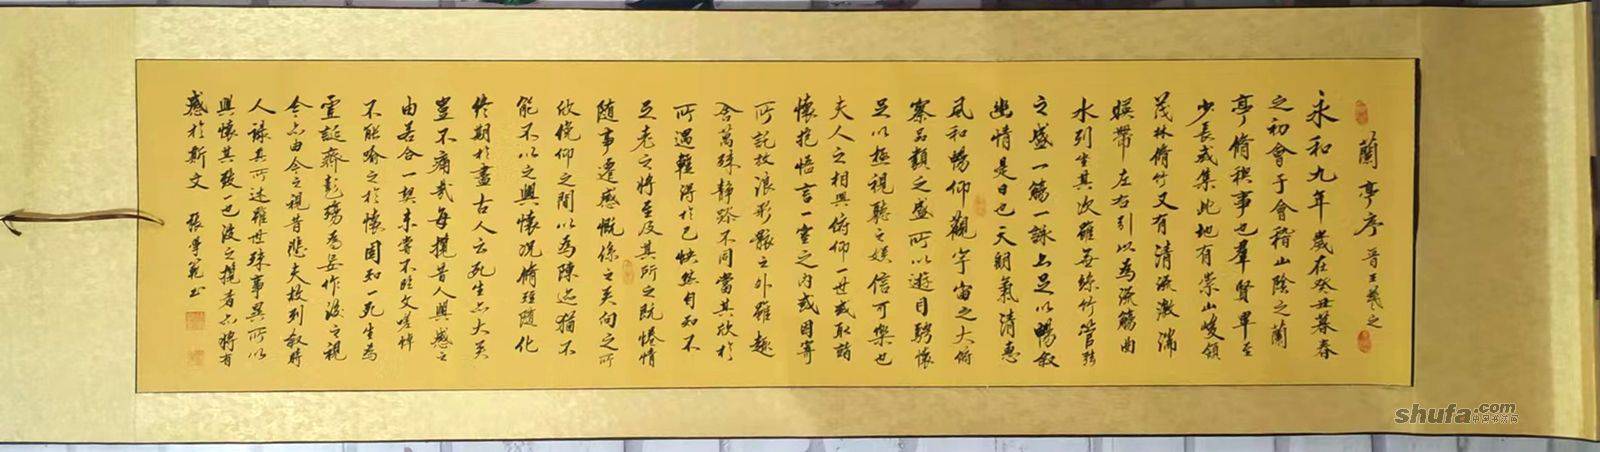 蘭亭序 晉王羲之
永和九年歲在癸丑暮春
之初會于會稽山陰之蘭
亭脩禊事也羣賢畢至
少長咸集此地有崇山峻領
茂林脩竹又有清流激湍
暎帶左右引以為流觴曲
水列坐其次雖無絲竹管弦
之盛一觴一詠亦足以暢叙
幽情是日也天朗氣清惠
風和暢仰觀宇宙之大俯
察品類之盛所以遊目騁懷
足以極視聽之娛信可樂也
夫人之相與俯仰一世或取諸
懷抱悟言一室之內或因寄
所託放浪形骸之外雖趣
舍萬殊靜躁不同當其欣於
所遇蹔得於己快然自知不
足老之將至及其所之既惓情
隨事遷感慨係之矣向之所
欣俛仰之間以為陳迹猶不
能不以之興懷況脩短隨化
終期於盡古人云死生亦大矣
豈不痛哉每攬昔人興感之
由若合一契未嘗不臨文嗟悼
不能喻之於懷固知一死生為
虛誕齊彭殤為妄作後之視
今亦由今之視昔悲夫故列叙時
人錄其所述雖世殊事異所以
興懷其致一也後之攬者亦將有
感於斯文 張學範書
shufa.com